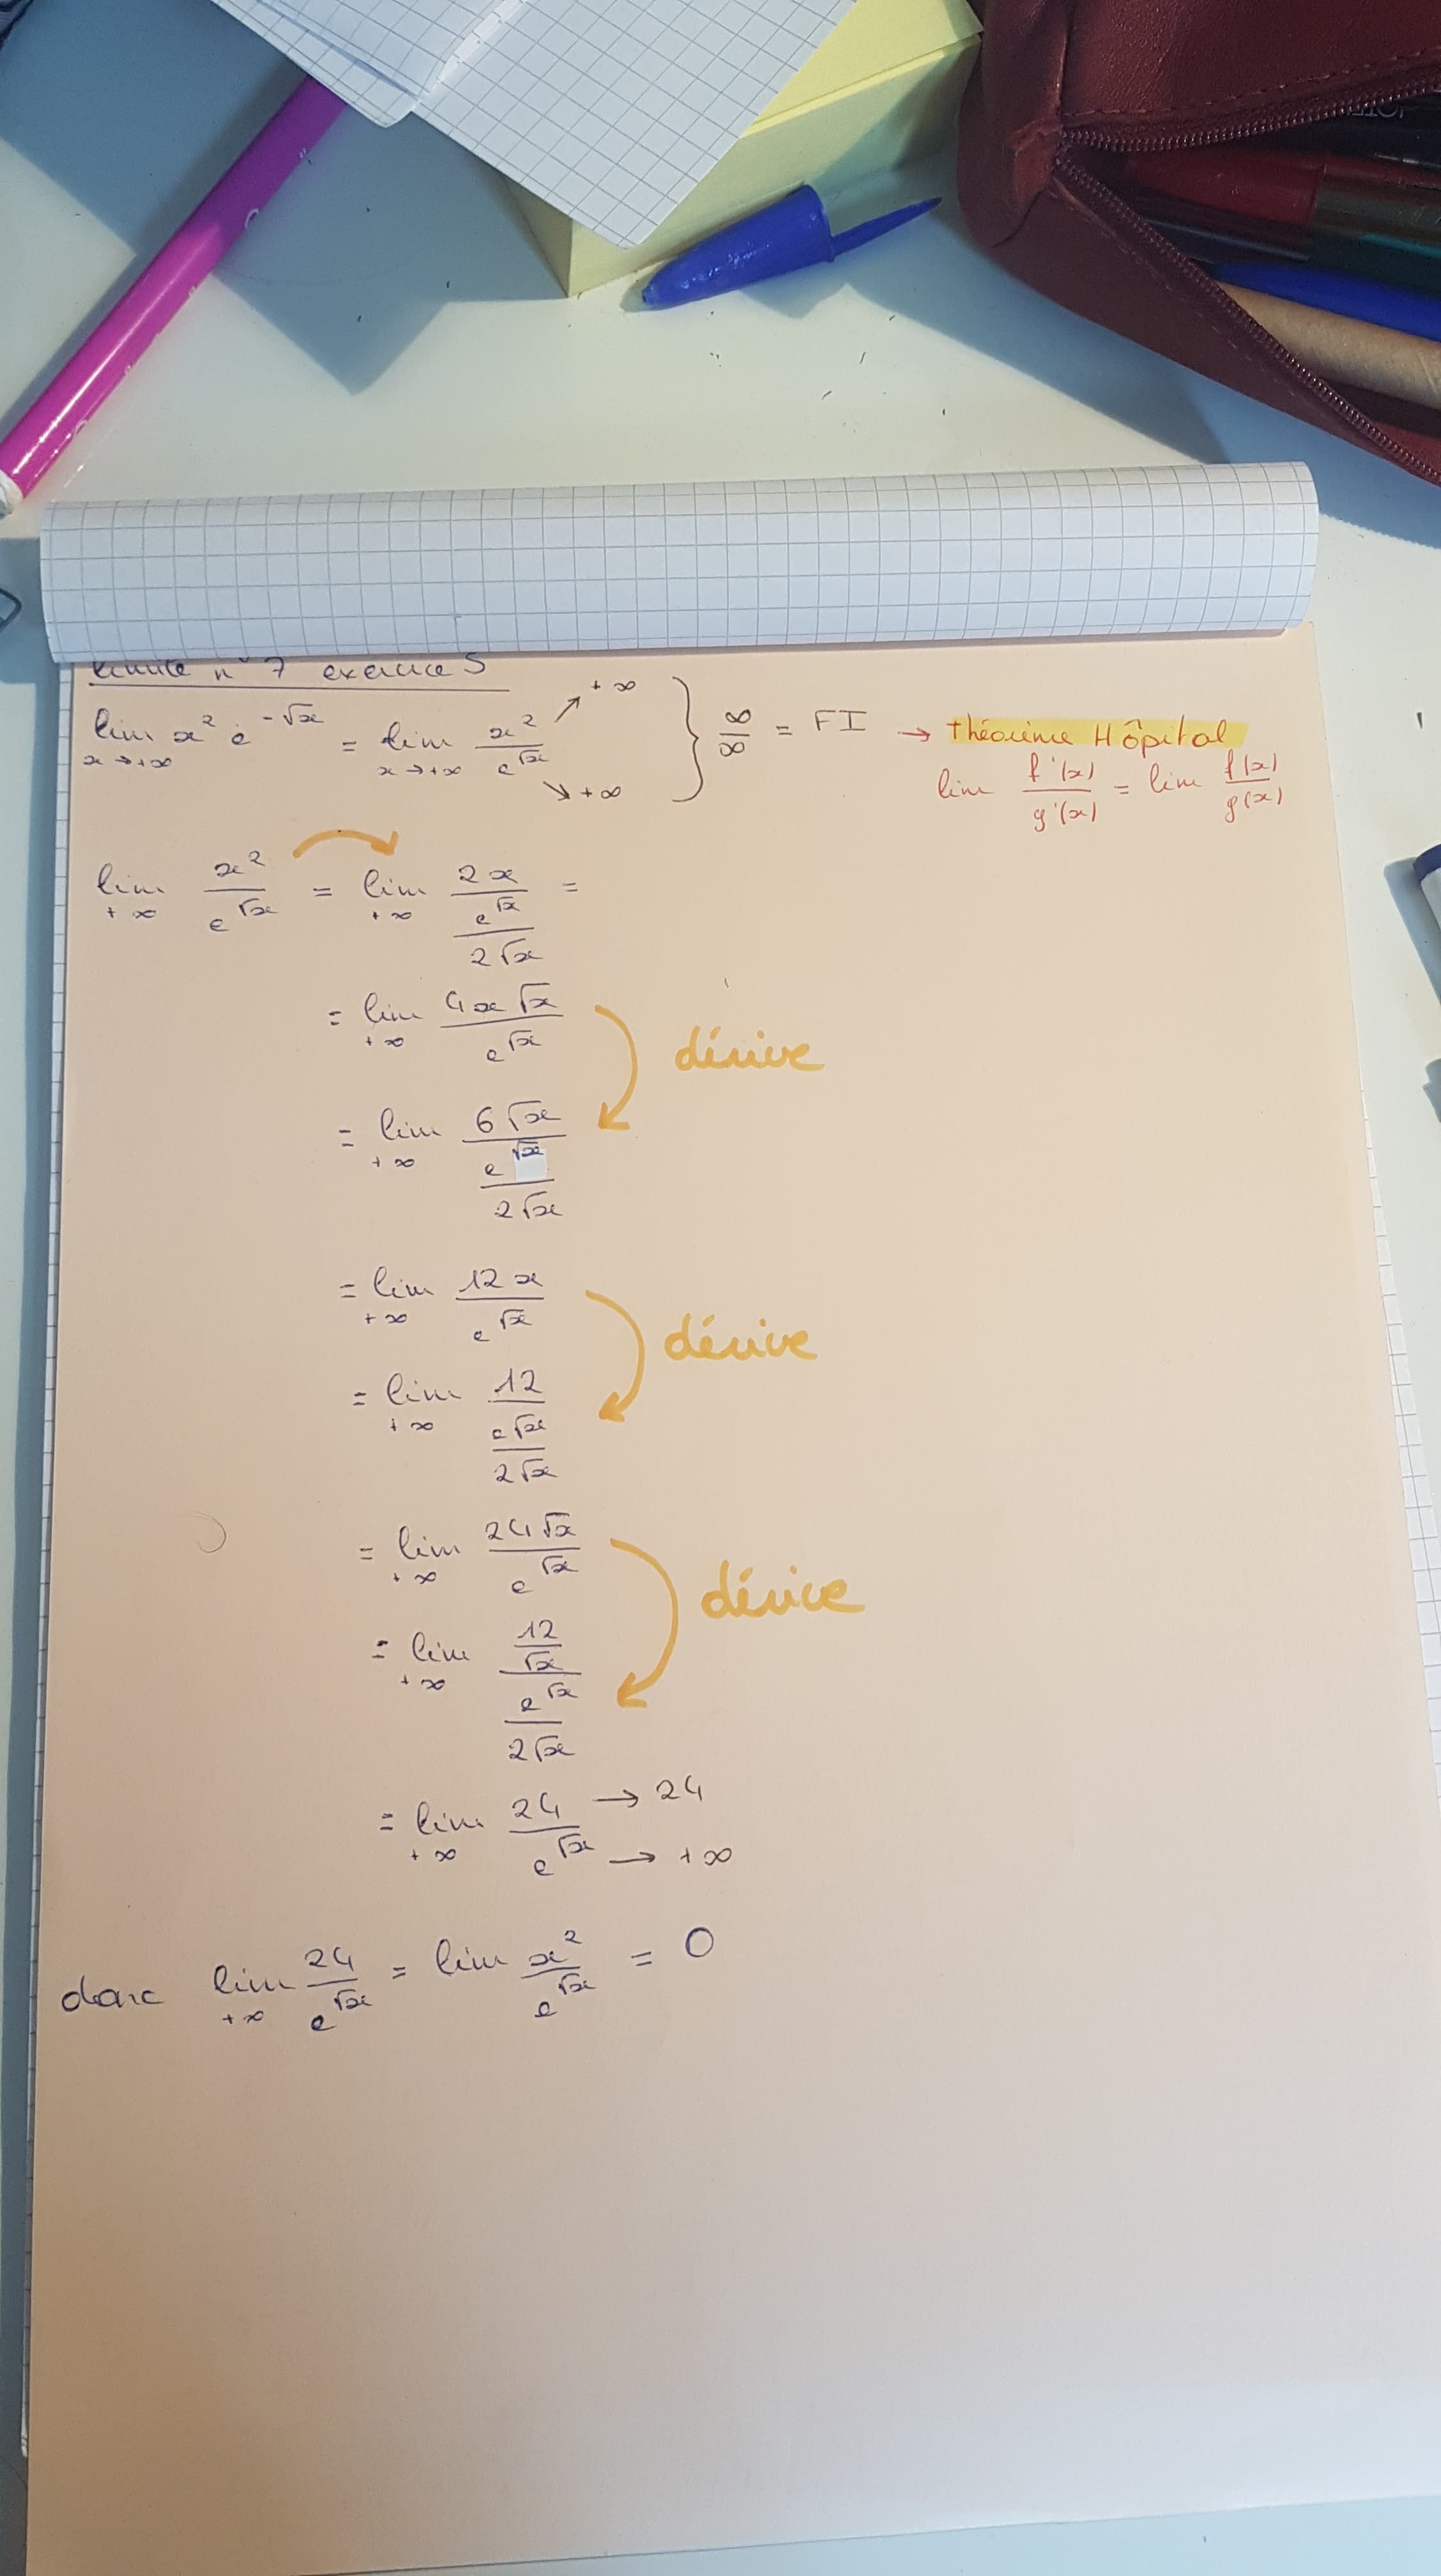 limite n° 7 exercice 5
lim x→+∞ x² e^(-√x) = lim x→+∞ x² / e^(√x) ↗ +∞ ↘ +∞ } ∞/∞ = FI → théorème Hôpital
lim f'(x)/g'(x) = lim f(x)/g(x)
lim +∞ x² / e^(√x) = lim +∞ 2x / (e^(√x) / 2√x) =
= lim +∞ 4x√x / e^(√x)
dérive
= lim +∞ 6√x / (e^(√x) / 2√x)
= lim +∞ 12x / e^(√x)
dérive
= lim +∞ 12 / (e^(√x) / 2√x)
= lim +∞ 24√x / e^(√x)
dérive
= lim +∞ (12/√x) / (e^(√x) / 2√x)
= lim +∞ 24 / e^(√x) → 24 → +∞
donc lim +∞ 24 / e^(√x) = lim x² / e^(√x) = 0